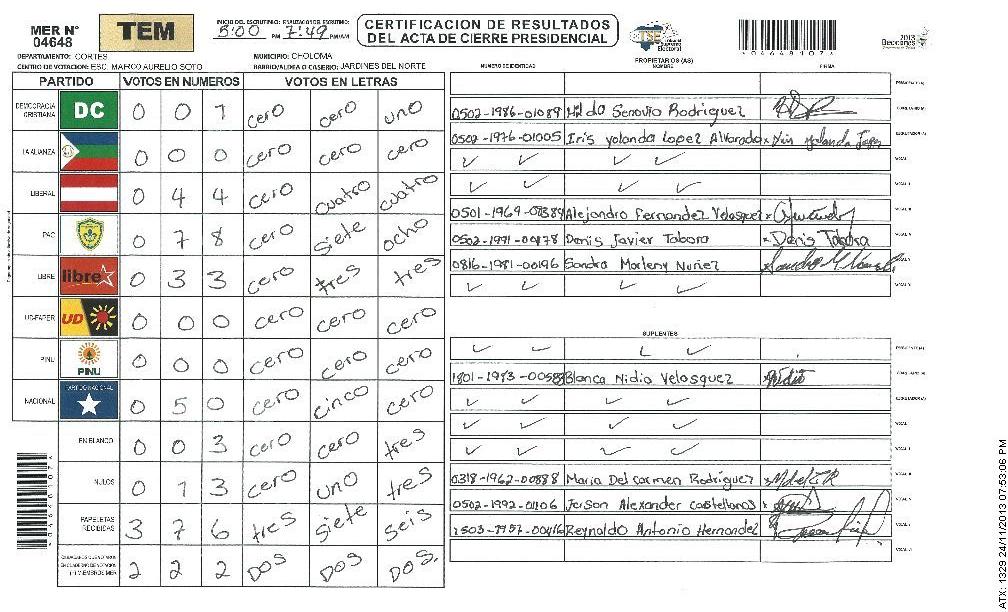 MER N° 04648
TEM
INICIO DEL ESCRUTINIO: 5:00 PM
FINALIZACION DEL ESCRUTINIO: 7:49 PM/AM
CERTIFICACION DE RESULTADOS
DEL ACTA DE CIERRE PRESIDENCIAL
TSE Tribunal Supremo Electoral
0464810 7
2013
Elecciones
DEPARTAMENTO: CORTES
MUNICIPIO: CHOLOMA
CENTRO DE VOTACION: ESC. MARCO AURELIO SOTO
BARRIO/ALDEA O CASERIO: JARDINES DEL NORTE
PARTIDO VOTOS EN NUMEROS VOTOS EN LETRAS
DEMOCRACIA CRISTIANA DC 0 0 1 cero cero uno
LA ALIANZA 0 0 0 cero cero cero
LIBERAL 0 4 4 cero cuatro cuatro
PAC 0 7 8 cero siete ocho
LIBRE libre 0 3 3 cero tres tres
UD-FAPER UD 0 0 0 cero cero cero
PINU PINU 0 0 0 cero cero cero
NACIONAL PARTIDO NACIONAL 0 5 0 cero cinco cero
EN BLANCO 0 0 3 cero cero tres
NULOS 0 1 3 cero uno tres
PAPELETAS RECIBIDAS 3 7 6 tres siete seis
2 2 2 DOS DOS DOS.
PROPIETARIOS (AS)
NUMERO DE IDENTIDAD NOMBRE FIRMA
0502-1986-01089 Hilda Senovia Rodriguez
0502-1976-01005 Iris Yolanda Lopez Alvarado
0501-1969-08389 Alejandro Fernandez Velasquez
0502-1991-00178 Denis Javier Tabora Denis Tabora
0816-1981-00196 Sandra Marleny Nuñez
SUPLENTES
1801-1983-00588 Blanca Nidia Velasquez
0318-1962-00888 Maria Del Carmen Rodriguez
0502-1992-01106 Jerson Alexander Castellanos
1503-1957-00416 Reynaldo Antonio Hernandez
ATX: 1329 24/11/2013 07:53:06 PM